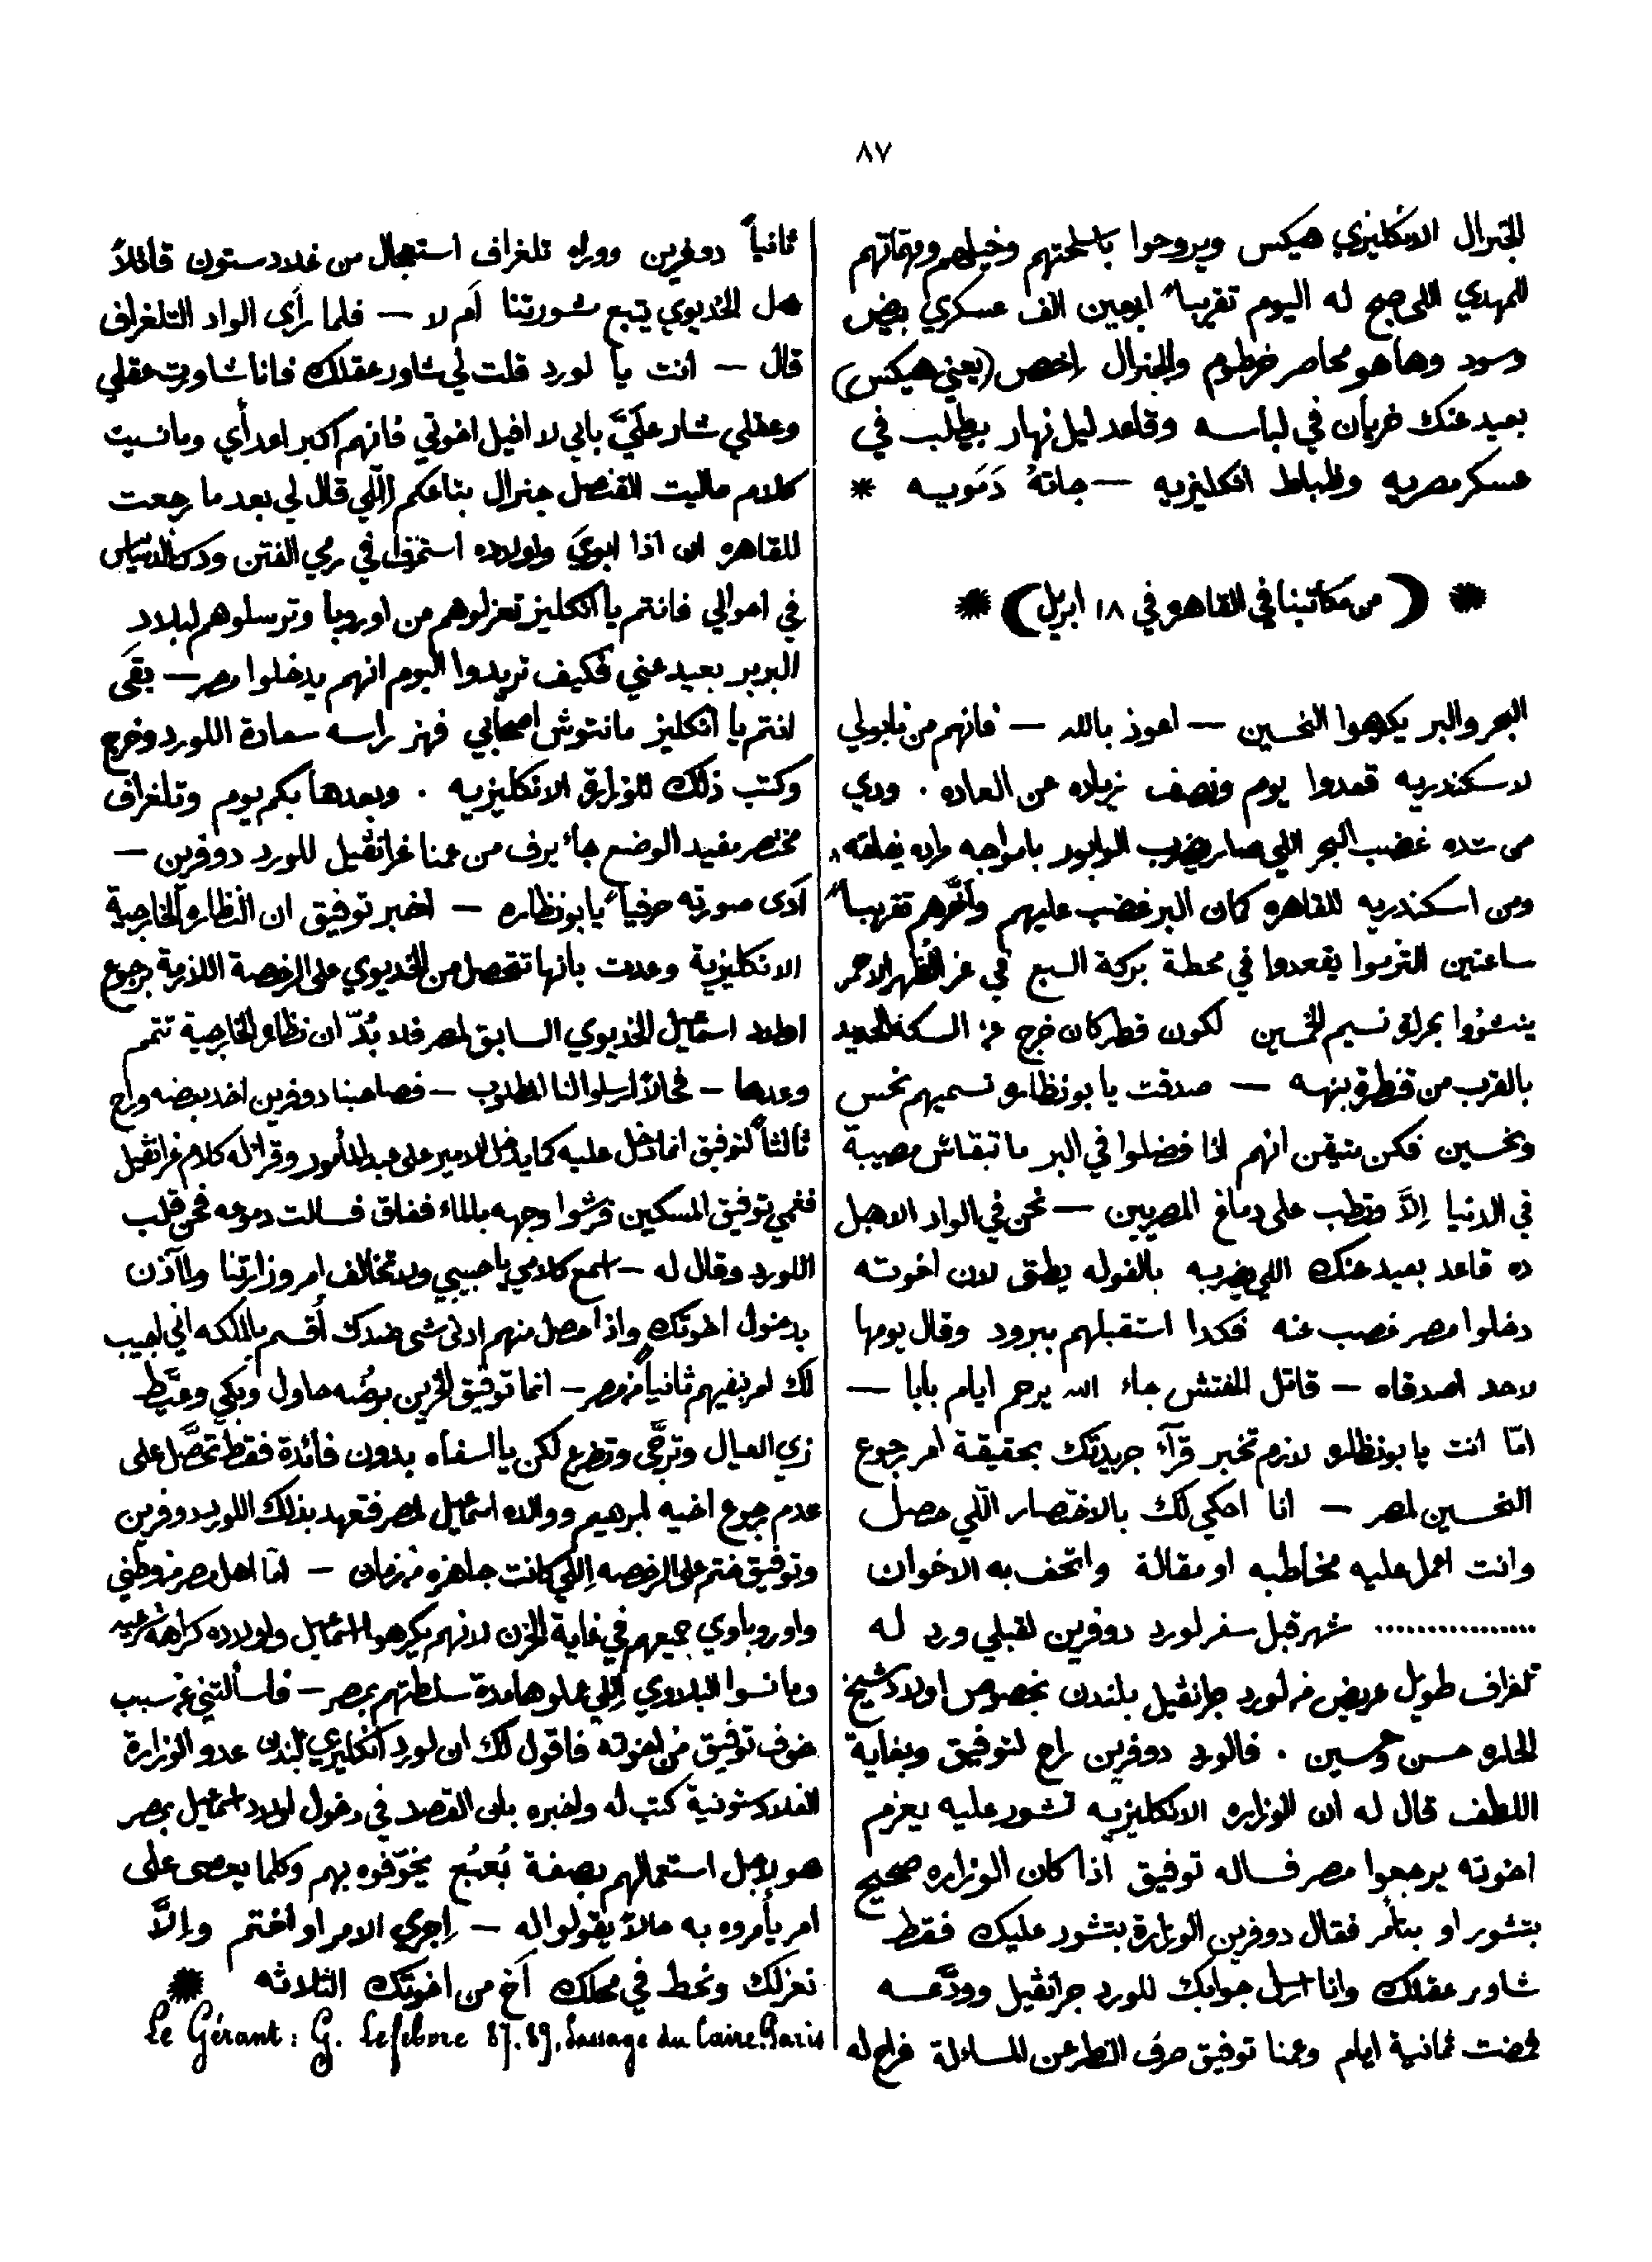 ٨٧
الجنرال الانكليزي هيكس ويروحوا باسلحتهم وخيلهم ومهماتهم
للمهدي اللي صبح له اليوم تقريباً اربعين الف عسكري بيض
وسود وها هو محاصر خرطوم والجنرال إخص (يعني هيكس)
بعيد عنك خريان في لباسه وقاعد ليل نهار بيطلب في
عسكر مصريه وظباط انكليزيه — جاتهُ دَمَويه *
* ( من مكاتبنا في القاهره في ١٨ ابريل ) *
البحر والبر يكرهوا النحسين — اعوذ بالله — فانهم من نابولي
لاسكندريه قعدوا يوم ونصف زياده عن العاده . ودي
من شده غضب البحر اللي صار يضرب الوابور بامواجه
ومن اسكندريه للقاهره كمان البر غضب عليهم وأخّرهم تقريباً
ساعتين التزموا يقعدوا في محطة بركة السبع في عز الظهر الاحمر
ينشووا بحرارة نسيم الخمسين لكون قطر كان خرج من السكه الحديد
بالقرب من قنطرة بنهه — صدقت يا بو نظاره تسميهم نحس
ونحسين فكن متيقن انهم اذا فضلوا في البر ما تبقاش مصيبة
في الدنيا إلاَّ وتطب على دماغ المصريين — نحن في الواد الاهبل
ده قاعد بعيد عنك اللي يضربه بالفوله يطق لان اخوته
دخلوا مصر غصب عنه فكدا استقبلهم ببرود وقال يومها
لاحد اصدقاه — قاتل المفتش جاء الله يرحم ايام بابا —
امّا انت يا بو نظاره لازم تخبر قرآء جريدتك بحقيقة امر رجوع
النحسين لمصر — انا احكي لك بالاختصار اللّي حصل
وانت اعمل عليه مخاطبه او مقالة واتحف به الاخوان
................ شهر قبل سفر لورد دوفرين لقبلي ورد له
تلغراف طويل عريض من لورد جرانفيل بلندن بخصوص اولاد شيخ
الحاره حسن وحسين . فالورد دوفرين راح لتوفيق وبغاية
اللطف قال له ان الوزاره الانكليزيه تشور عليه يعزم
اخوته يرجعوا مصر فساله توفيق اذا كان الوزاره صحيح
بتشور او بتأمر فقال دوفرين الوزارة بتشور عليك فقط
شاور عقلك وانا ارسل جوابك للورد جرانفيل وودَّعه
فمضت ثمانية ايام وعمنا توفيق صرف النظر عن المسألة فراح له
ثانياً دوفرين ووراه تلغراف استعجال من غلادستون قائلاً
هل الخديوي يتبع شورتنا أم لا — فلما رأى الواد التلغراف
قال — انت يا لورد قلت لي شاور عقلك فانا شاورت عقلي
وعقلي شار علَيَّ باني لا اقبل اخوتي فانهم اكبر اعدأي ومانسيت
كلام ماليت القنصل جنرال بتاعكم اللّي قال لي بعد ما رجعت
للقاهره ان اذا ابويَ واولاده استمروا في رمي الفتن
في احوالي فانتم يا انكليز تعزلوهم من اوروبا وترسلوهم لبلاد
البربر بعيد عني فكيف تريدوا اليوم انهم يدخلوا مصر — بقَى
انتم يا انكليز مانتوش اصحابي فهز راسه سعادة اللورد وخرج
وكتب ذلك للوزارة الانكليزيه . وبعدها بكم يوم وتلغراف
مختصر مفيد الوضع جاء برف من عمنا غرانفيل للورد دوفرين —
أدى صورته حرفياً يا بو نظاره — اخبر توفيق ان النظارة الخارجية
الانكليزية وعدت بانها تتحصل من الخديوي على الرخصة اللازمة برجوع
اولاد اسماعيل الخديوي السابق لمصر فلا بُدّ ان نظارة الخارجية تتمم
وعدها — فحالاً ارسلوا لنا المطلوب — فصاحبنا دوفرين اخد بعضه وراح
ثالثاً لتوفيق انما دخل عليه كما يدخل الامير على عبد المأمور وقرا له كلام غرانفيل
فغمي توفيق المسكين فرشوا وجهه بالماء ففاق فسالت دموعه فحن قلب
اللورد وقال له — اسمع كلامي يا حبيبي ولا تخالف امر وزارتنا واأذن
بدخول اخوتك واذا حصل منهم ادنى شى ضدك أُقسم بالملكه اني اجيب
لك امر بنفيهم ثانياً من مصر — انما توفيق الحزين برضُه حاول وبكي وعيَّط
زي العيال وترجَّى وتضرع لكن يا اسفاه بدون فائدة فقط تحصَّل على
عدم رجوع اخيه ابرهيم ووالده اسماعيل لمصر فتعهد بذلك اللورد دوفرين
وتوفيق ختم على الرخصه اللي كانت جاهزه من زمان — امّا اهل مصر من وطني
واوروباوي جميعهم في غاية الحزن لانهم يكرهوا اسماعيل واولاده كراهة
ومانسوا البلاوي اللي عملوها مدة سلطتهم بمصر — فاسألتني عن سبب
خوف توفيق من اخوته فاقول لك ان لورد انكليزي بلندن عدو الوزارة
الغلادستونية كتب له واخبره بان القصد في دخول اولاد اسماعيل بمصر
هو لاجل استعمالهم بصفة بُعبُع يخوّفوه بهم وكلما يعصى على
امر يأمروه به حالاً يقولوا له — إجري الامر او اختم وإلاَّ
نعزلك ونحط في محلك أخ من اخوتك الثلاثه *
Le Gérant: G. Lefebvre 87.89. Passage du Caire. Paris